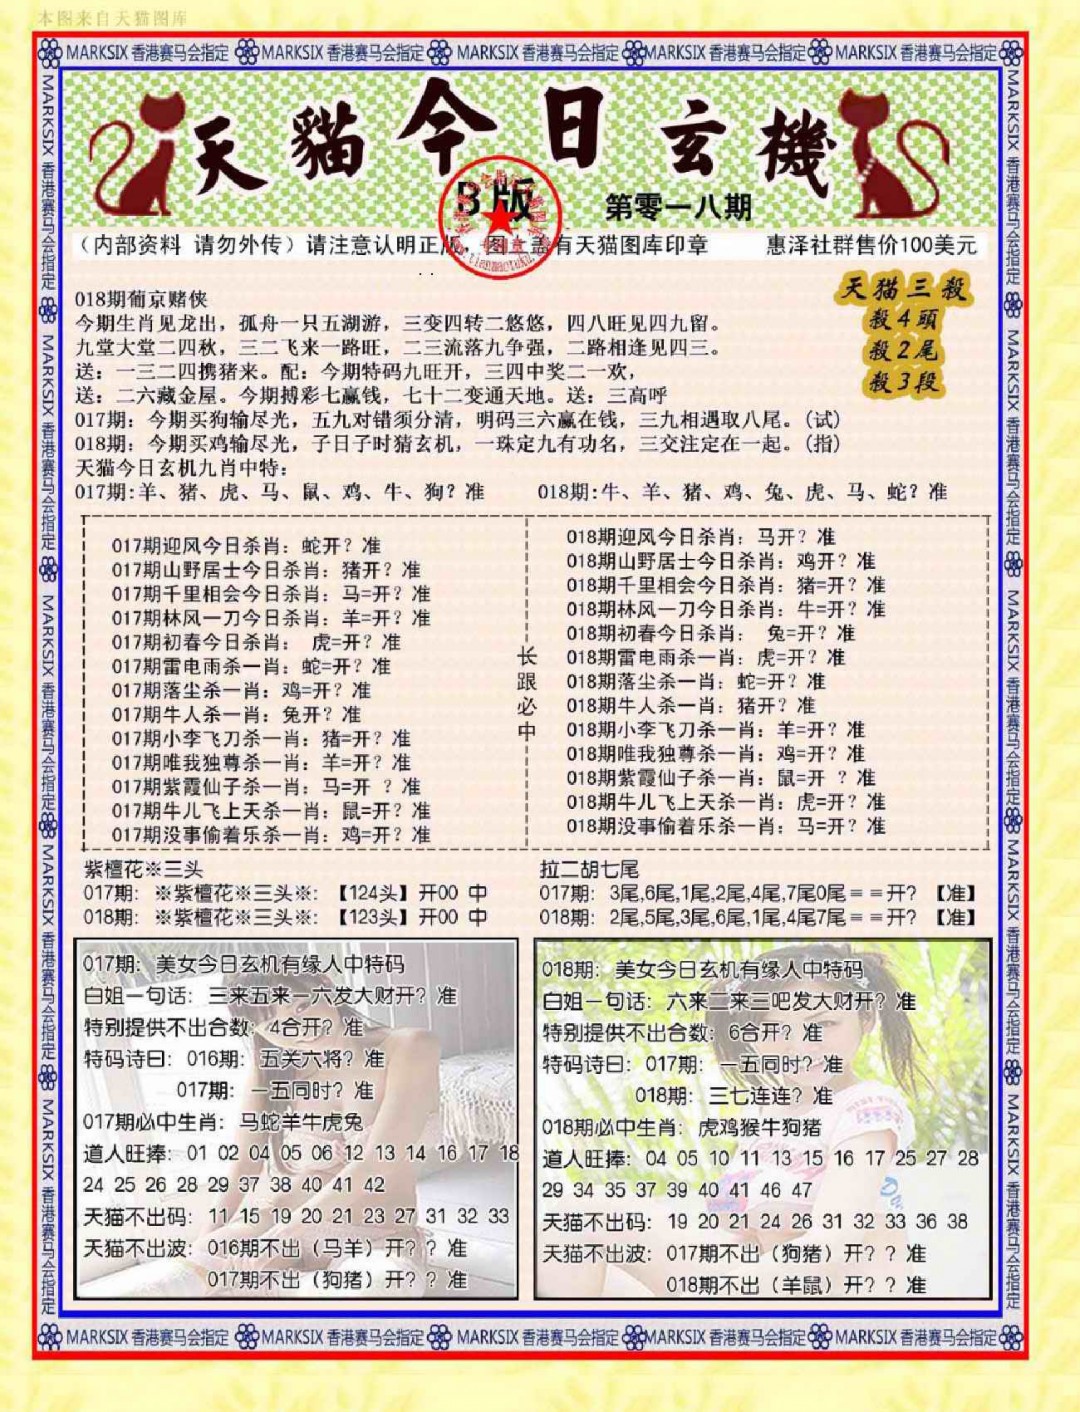 本图来自天猫图库
MARKSIX 香港赛马会指定 MARKSIX 香港赛马会指定 MARKSIX 香港赛马会指定 MARKSIX 香港赛马会指定 MARKSIX 香港赛马会指定
天貓今日玄機
B版
第零一八期
（内部资料 请勿外传）请注意认明正版，图上盖有天猫图库印章
惠泽社群售价100美元
天猫三殺
殺4頭
殺2尾
殺3段
018期葡京赌侠
今期生肖见龙出，孤舟一只五湖游，三变四转二悠悠，四八旺见四九留。
九堂大堂二四秋，三二飞来一路旺，二三流落九争强，二路相逢见四三。
送：一三二四携猪来。配：今期特码九旺开，三四中奖二一欢，
送：二六藏金屋。今期搏彩七赢钱，七十二变通天地。送：三高呼
017期：今期买狗输尽光，五九对错须分清，明码三六赢在钱，三九相遇取八尾。(试)
018期：今期买鸡输尽光，子日子时猜玄机，一珠定九有功名，三交注定在一起。(指)
天猫今日玄机九肖中特：
017期:羊、猪、虎、马、鼠、鸡、牛、狗？准
018期:牛、羊、猪、鸡、兔、虎、马、蛇？准
017期迎风今日杀肖：蛇开？准
017期山野居士今日杀肖：猪开？准
017期千里相会今日杀肖：马=开？准
017期林风一刀今日杀肖：羊=开？准
017期初春今日杀肖： 虎=开？准
017期雷电雨杀一肖：蛇=开？准
017期落尘杀一肖：鸡=开？准
017期牛人杀一肖：兔开？准
017期小李飞刀杀一肖：猪=开？准
017期唯我独尊杀一肖：羊=开？准
017期紫霞仙子杀一肖：马=开 ？准
017期牛儿飞上天杀一肖：鼠=开？准
017期没事偷着乐杀一肖：鸡=开？准
长跟必中
018期迎风今日杀肖：马开？准
018期山野居士今日杀肖：鸡开？准
018期千里相会今日杀肖：猪=开？准
018期林风一刀今日杀肖：牛=开？准
018期初春今日杀肖： 兔=开？准
018期雷电雨杀一肖：虎=开？准
018期落尘杀一肖：蛇=开？准
018期牛人杀一肖：猪开？准
018期小李飞刀杀一肖：羊=开？准
018期唯我独尊杀一肖：鸡=开？准
018期紫霞仙子杀一肖：鼠=开 ？准
018期牛儿飞上天杀一肖：虎=开？准
018期没事偷着乐杀一肖：马=开？准
紫檀花※三头
017期：※紫檀花※三头※：【124头】开00 中
018期：※紫檀花※三头※：【123头】开00 中
拉二胡七尾
017期：3尾,6尾,1尾,2尾,4尾,7尾0尾＝＝开？【准】
018期：2尾,5尾,3尾,6尾,1尾,4尾7尾＝＝开？【准】
017期：美女今日玄机有缘人中特码
白姐一句话：三来五来一六发大财开？准
特别提供不出合数：4合开？准
特码诗曰：016期：五关六将？准
017期：一五同时？准
017期必中生肖：马蛇羊牛虎兔
道人旺捧：01 02 04 05 06 12 13 14 16 17 18
24 25 26 28 29 37 38 40 41 42
天猫不出码：11 15 19 20 21 23 27 31 32 33
天猫不出波：016期不出（马羊）开？？准
017期不出（狗猪）开？？准
018期：美女今日玄机有缘人中特码
白姐一句话：六来二来三吧发大财开？准
特别提供不出合数：6合开？准
特码诗曰：017期：一五同时？准
018期：三七连连？准
018期必中生肖：虎鸡猴牛狗猪
道人旺捧：04 05 10 11 13 15 16 17 25 27 28
29 34 35 37 39 40 41 46 47
天猫不出码：19 20 21 24 26 31 32 33 36 38
天猫不出波：017期不出（狗猪）开？？准
018期不出（羊鼠）开？？准
MARKSIX 香港赛马会指定 MARKSIX 香港赛马会指定 MARKSIX 香港赛马会指定 MARKSIX 香港赛马会指定 MARKSIX 香港赛马会指定
MARKSIX 香港赛马会指定 MARKSIX 香港赛马会指定 MARKSIX 香港赛马会指定 MARKSIX 香港赛马会指定 MARKSIX 香港赛马会指定
MARKSIX 香港赛马会指定 MARKSIX 香港赛马会指定 MARKSIX 香港赛马会指定 MARKSIX 香港赛马会指定 MARKSIX 香港赛马会指定